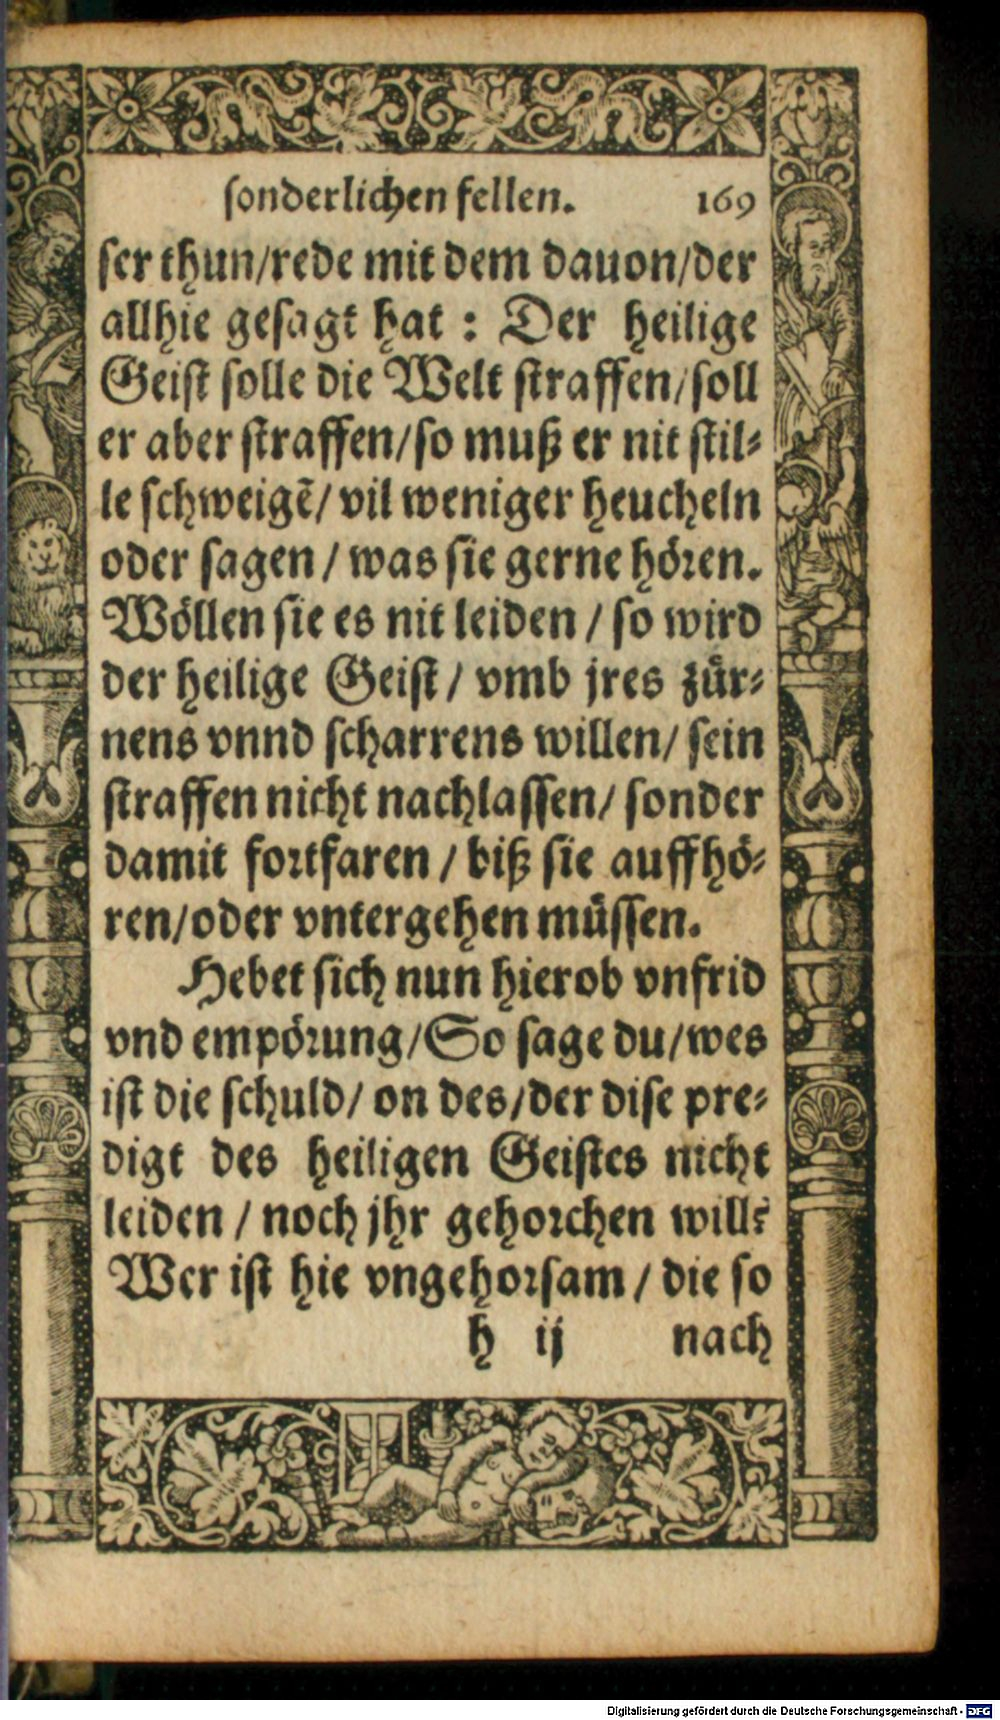 sonderlichen fellen. 169
ser thun/rede mit dem dauon/der
allhie gesagt hat : Der heilige
Geist solle die Welt straffen/soll
er aber straffen/so muß er nit stil⸗
le schweigẽ/ vil weniger heucheln
oder sagen / was sie gerne hören.
Wöllen sie es nit leiden / so wird
der heilige Geist / vmb jres zür⸗
nens vnnd scharrens willen/ sein
straffen nicht nachlassen/ sonder
damit fortfaren / biß sie auffhö⸗
ren/oder vntergehen müssen.
Hebet sich nun hierob vnfrid
vnd empörung/So sage du/wes
ist die schuld/ on des/der dise pre⸗
digt des heiligen Geistes nicht
leiden / noch jhr gehorchen will?
Wer ist hie vngehorsam / die so
h ij nach
Digitalisierung gefördert durch die Deutsche Forschungsgemeinschaft - DFG